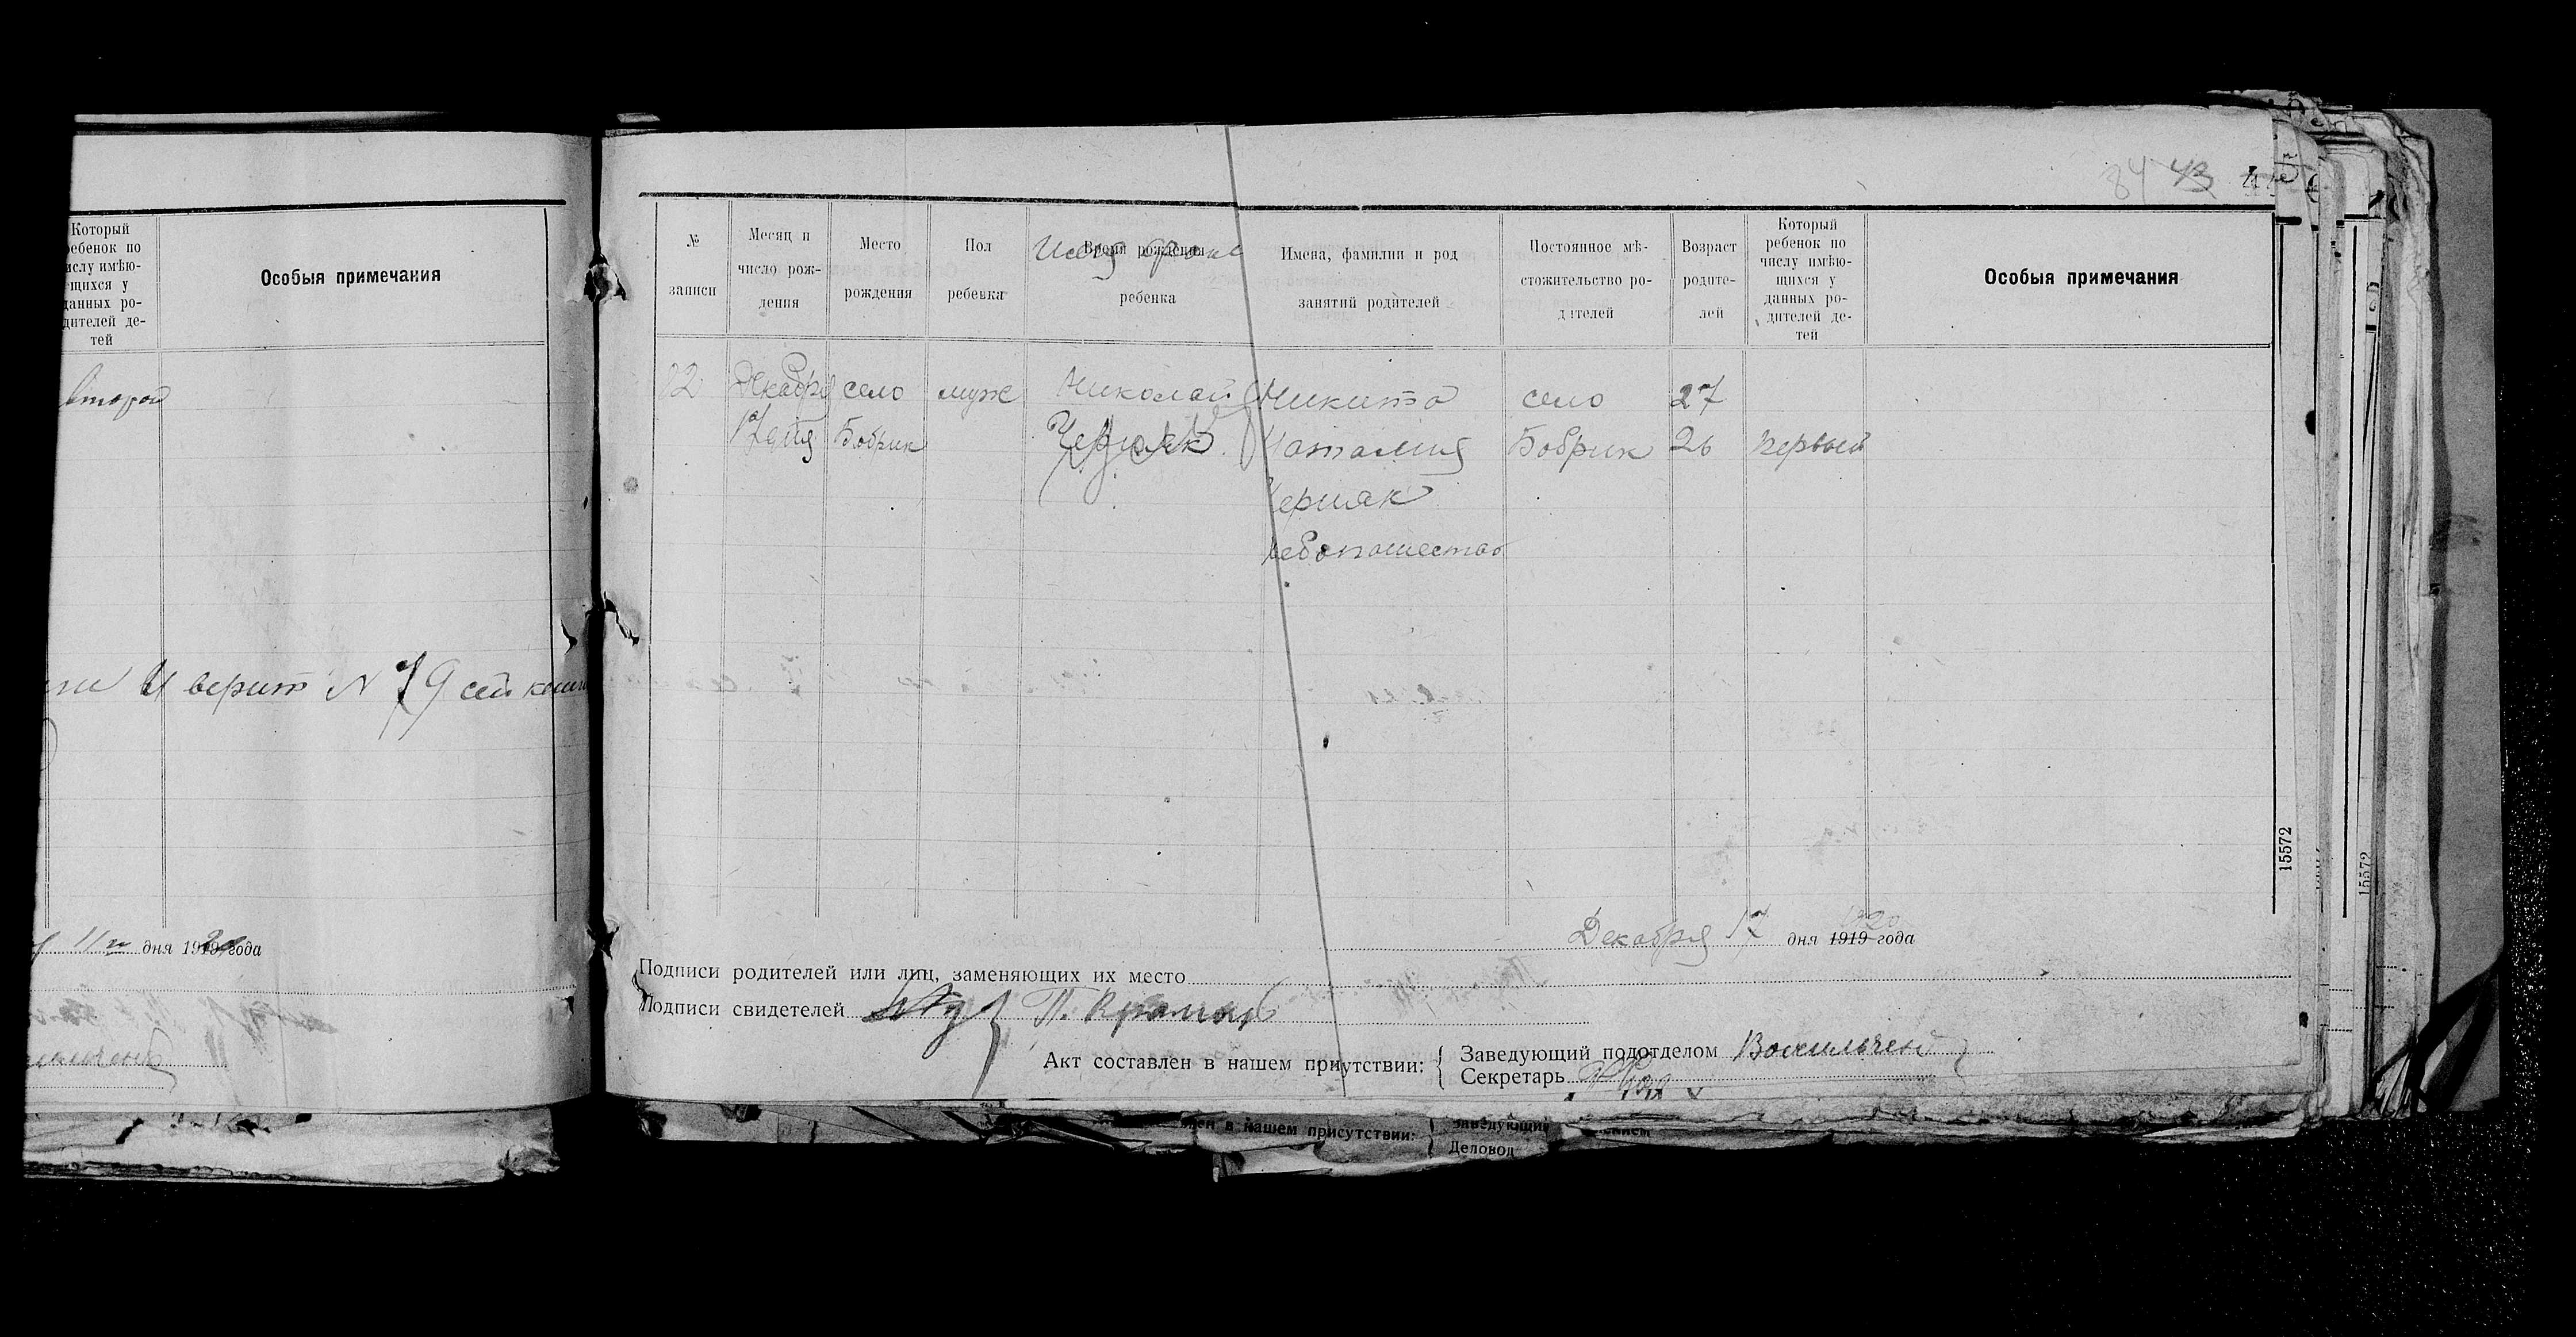 Который
ребенок по
числу имѣю-
щихся у
данных ро-
дителей де-
тей
Особыя примечания
второй
и верит N 79 сей
11 дня 19 года
84 43
№
записи
Месяц и
число рож-
дения
Место
рождения
Пол
ребенка
Время рождения
ребенка
Имена, фамилии и род
занятий родителей
Постоянное мѣ-
стожительство ро-
дителей
Возраст
родите-
лей
Который
ребенок по
числу имѣю-
щихся у
данных ро-
дителей де-
тей
Особыя примечания
Декабря село муж Николай Никита село 27
17 дня Бобрик Черняк Наталия Бобрик 26 первый
Черняк
хлебопашество
15572
15572
Декабря 17 дня 1919 года
1920
Подписи родителей или лиц, заменяющих их место
Подписи свидетелей П.
Акт составлен в нашем присутствии: Заведующий подотделом
Секретарь
в нашем присутствии: Заведующий
Деловод